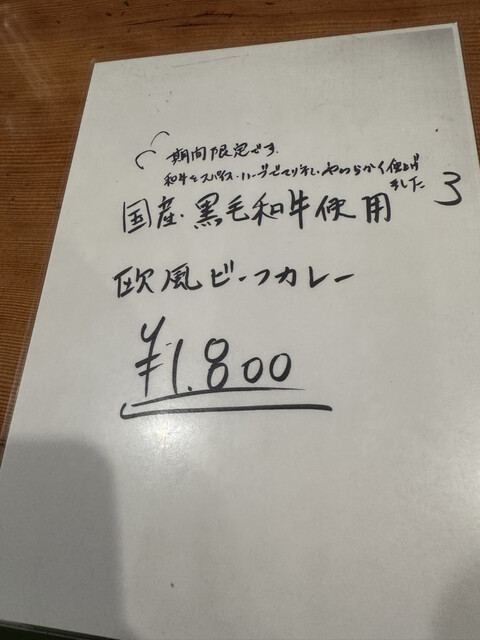 期間限定です。
和牛をスパイス・ハーブでマリネし、やわらかく仕上げ
ました
3
国産・黒毛和牛使用
欧風ビーフカレー
¥1.800